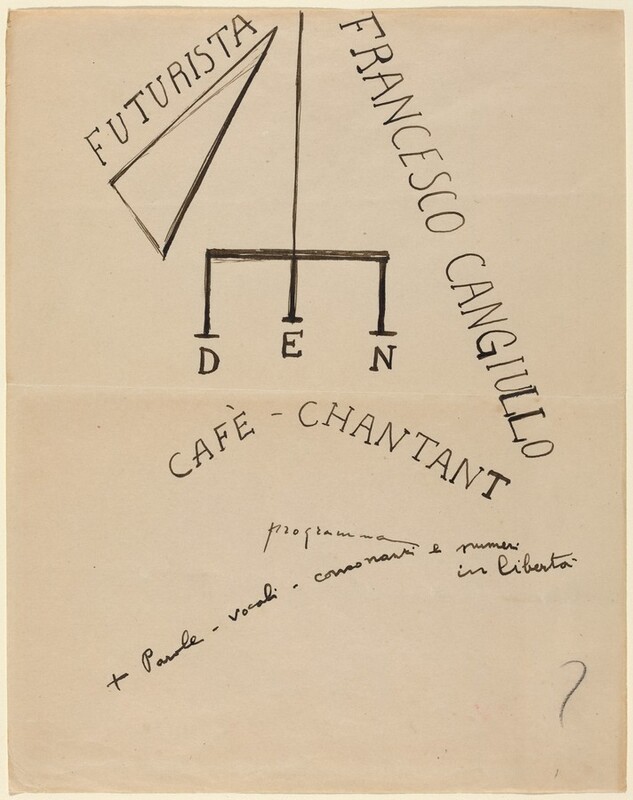 FUTURISTA
FRANCESCO CANGIULLO
D E N
CAFÈ - CHANTANT
programma
+ Parole - vocali - consonanti e numeri
in libertà